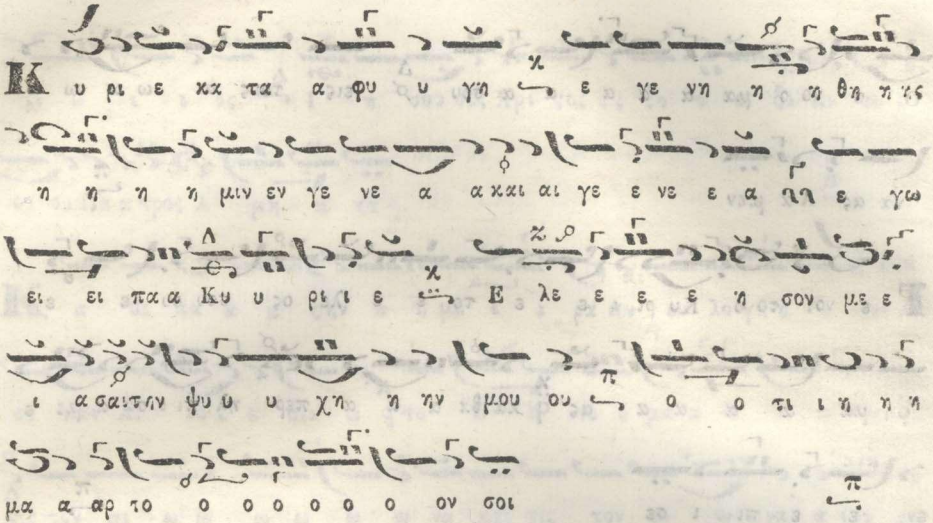 Κ υ ρι ε κα τα α φυ υ γη ε γε νη η η θη η ης
η η η η μιν εν γε νε α α και αι γε ε νε ε α ε γω
ει ει πα α Κυ υ ρι ι ε Ε λε ε ε ε η σον με ε
ι α σαι την ψυ υ υ χη η ην μου ου ο ο τι ι η η η
μα α αρ το ο ο ο ο ο ο ον σοι